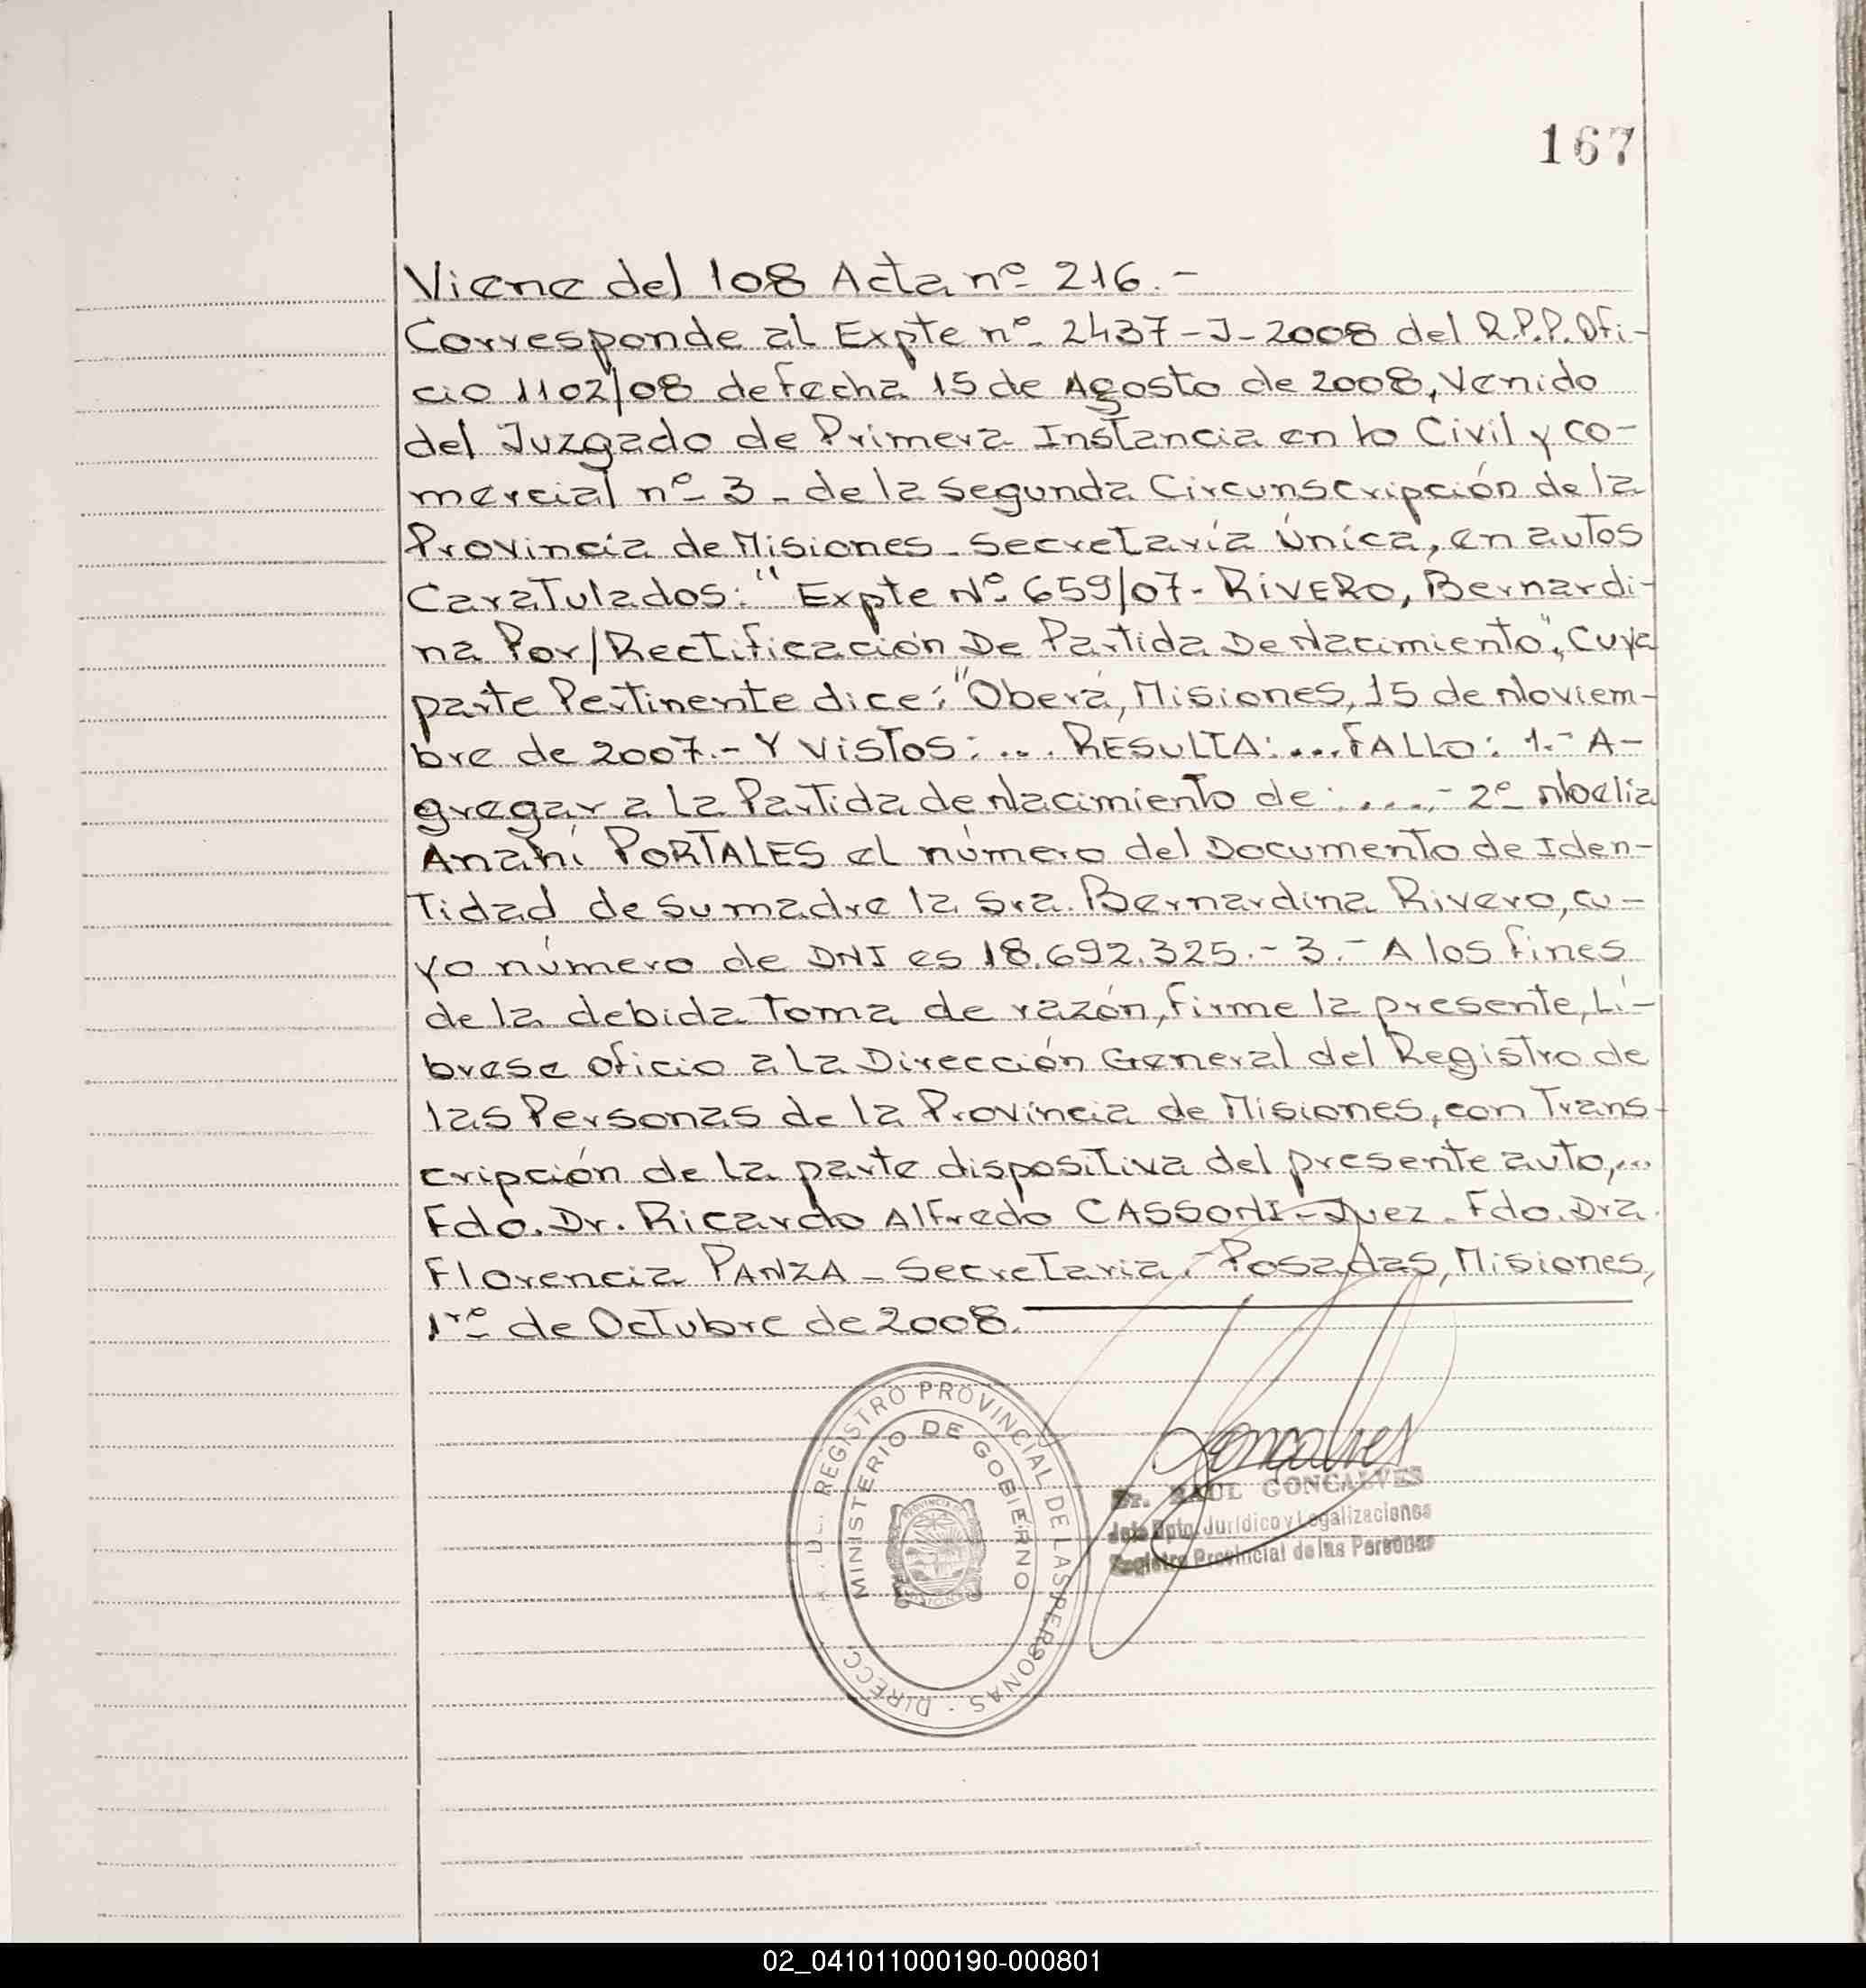 167
Viene del 108 Acta nº 216.-
Corresponde al Expte nº 2437-J-2008 del R.P.P. Ofi-
cio 1102/08 de fecha 15 de Agosto de 2008, Venido
del Juzgado de Primera Instancia en lo Civil y co-
mercial nº 3 - de la segunda Circunscripción de la
Provincia de Misiones - Secretaría Única, en autos
Caratulados: "Expte Nº 659/07- RIVERO, Bernardi-
na Por/Rectificación De Partida De Nacimiento", Cuya
parte Pertinente dice: "Oberá, Misiones, 15 de Noviem-
bre de 2007.- Y VISTOS: ... RESULTA: ... FALLO: 1.- A-
gregar a la Partida de Nacimiento de: ....- 2º Noelia
Anahí PORTALES el número del Documento de Iden-
tidad de su madre la Sra. Bernardina Rivero, cu-
yo número de DNI es 18.692.325.- 3.- A los fines
de la debida toma de razón, firme la presente, Lí-
brese oficio a la Dirección General del Registro de
las Personas de la Provincia de Misiones, con Trans-
cripción de la parte dispositiva del presente auto,...
Fdo. Dr. Ricardo Alfredo CASSONI - Juez. Fdo. Dra.
Florencia PANZA - Secretaria. Posadas, Misiones,
1ro de Octubre de 2008.
DIRECC. DEL REGISTRO PROVINCIAL DE LAS PERSONAS
MINISTERIO DE GOBIERNO
PROVINCIA
MISIONES
Goncalves
Dr. RAUL GONCALVES
Jefe Dpto. Jurídico y Legalizaciones
Registro Provincial de las Personas
02_041011000190-000801